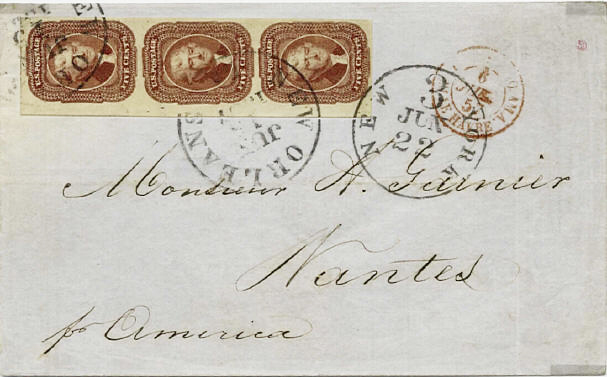 U.S. POSTAGE FIVE CENTS
U.S. POSTAGE FIVE CENTS
U.S. POSTAGE FIVE CENTS
NEW ORLEANS
NEW YORK
3
JUN
22
Monsieur A. Garnier
Nantes
pr America